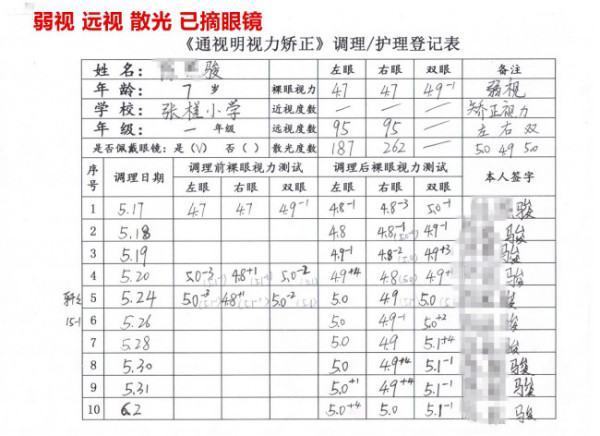 弱视 远视 散光 已摘眼镜
《通视明视力矫正》调理/护理登记表
姓名: 骏 左眼 右眼 双眼 备注
年龄: 7 岁 裸眼视力 4.7 4.7 4.9⁻¹ 弱视
学校: 张槎小学 近视度数 — — — 矫正视力
年级: 一 年级 远视度数 95 95 — 左 右 双
是否佩戴眼镜: 是 (V) 否 ( ) 散光度数 187 262 — 5.0 4.9 5.0
序号 调理日期 调理前裸眼视力测试 调理后裸眼视力测试 本人签字
左眼 右眼 双眼 左眼 右眼 双眼
1 5.17 4.7 4.7 4.9⁻¹ 4.8⁻¹ 4.8⁻³ 5.0⁻¹ 骏
2 5.18 4.8 4.8⁻¹ 4.9⁻¹ 骏
3 5.19 4.9⁻¹ 4.8⁻² 4.9⁺³ 骏
4 5.20 5.0⁻³ 4.8⁺¹ 5.0⁻² 4.9⁺⁴ 4.8 4.9⁺¹ 骏
5 5.24 5.0⁻³ 4.8⁺¹ 5.0⁻² 5.0 4.9 5.0 骏
6 5.26 5.0 4.9⁻¹ 5.0⁺² 骏
7 5.28 5.0 4.9 5.1⁺⁴ 骏
8 5.30 5.0 4.9⁺⁴ 5.1⁻¹ 骏
9 5.31 5.0⁺¹ 4.9⁺⁴ 5.1⁻¹ 骏
10 6.2 5.0⁺⁴ 5.0 5.1⁻¹ 骏